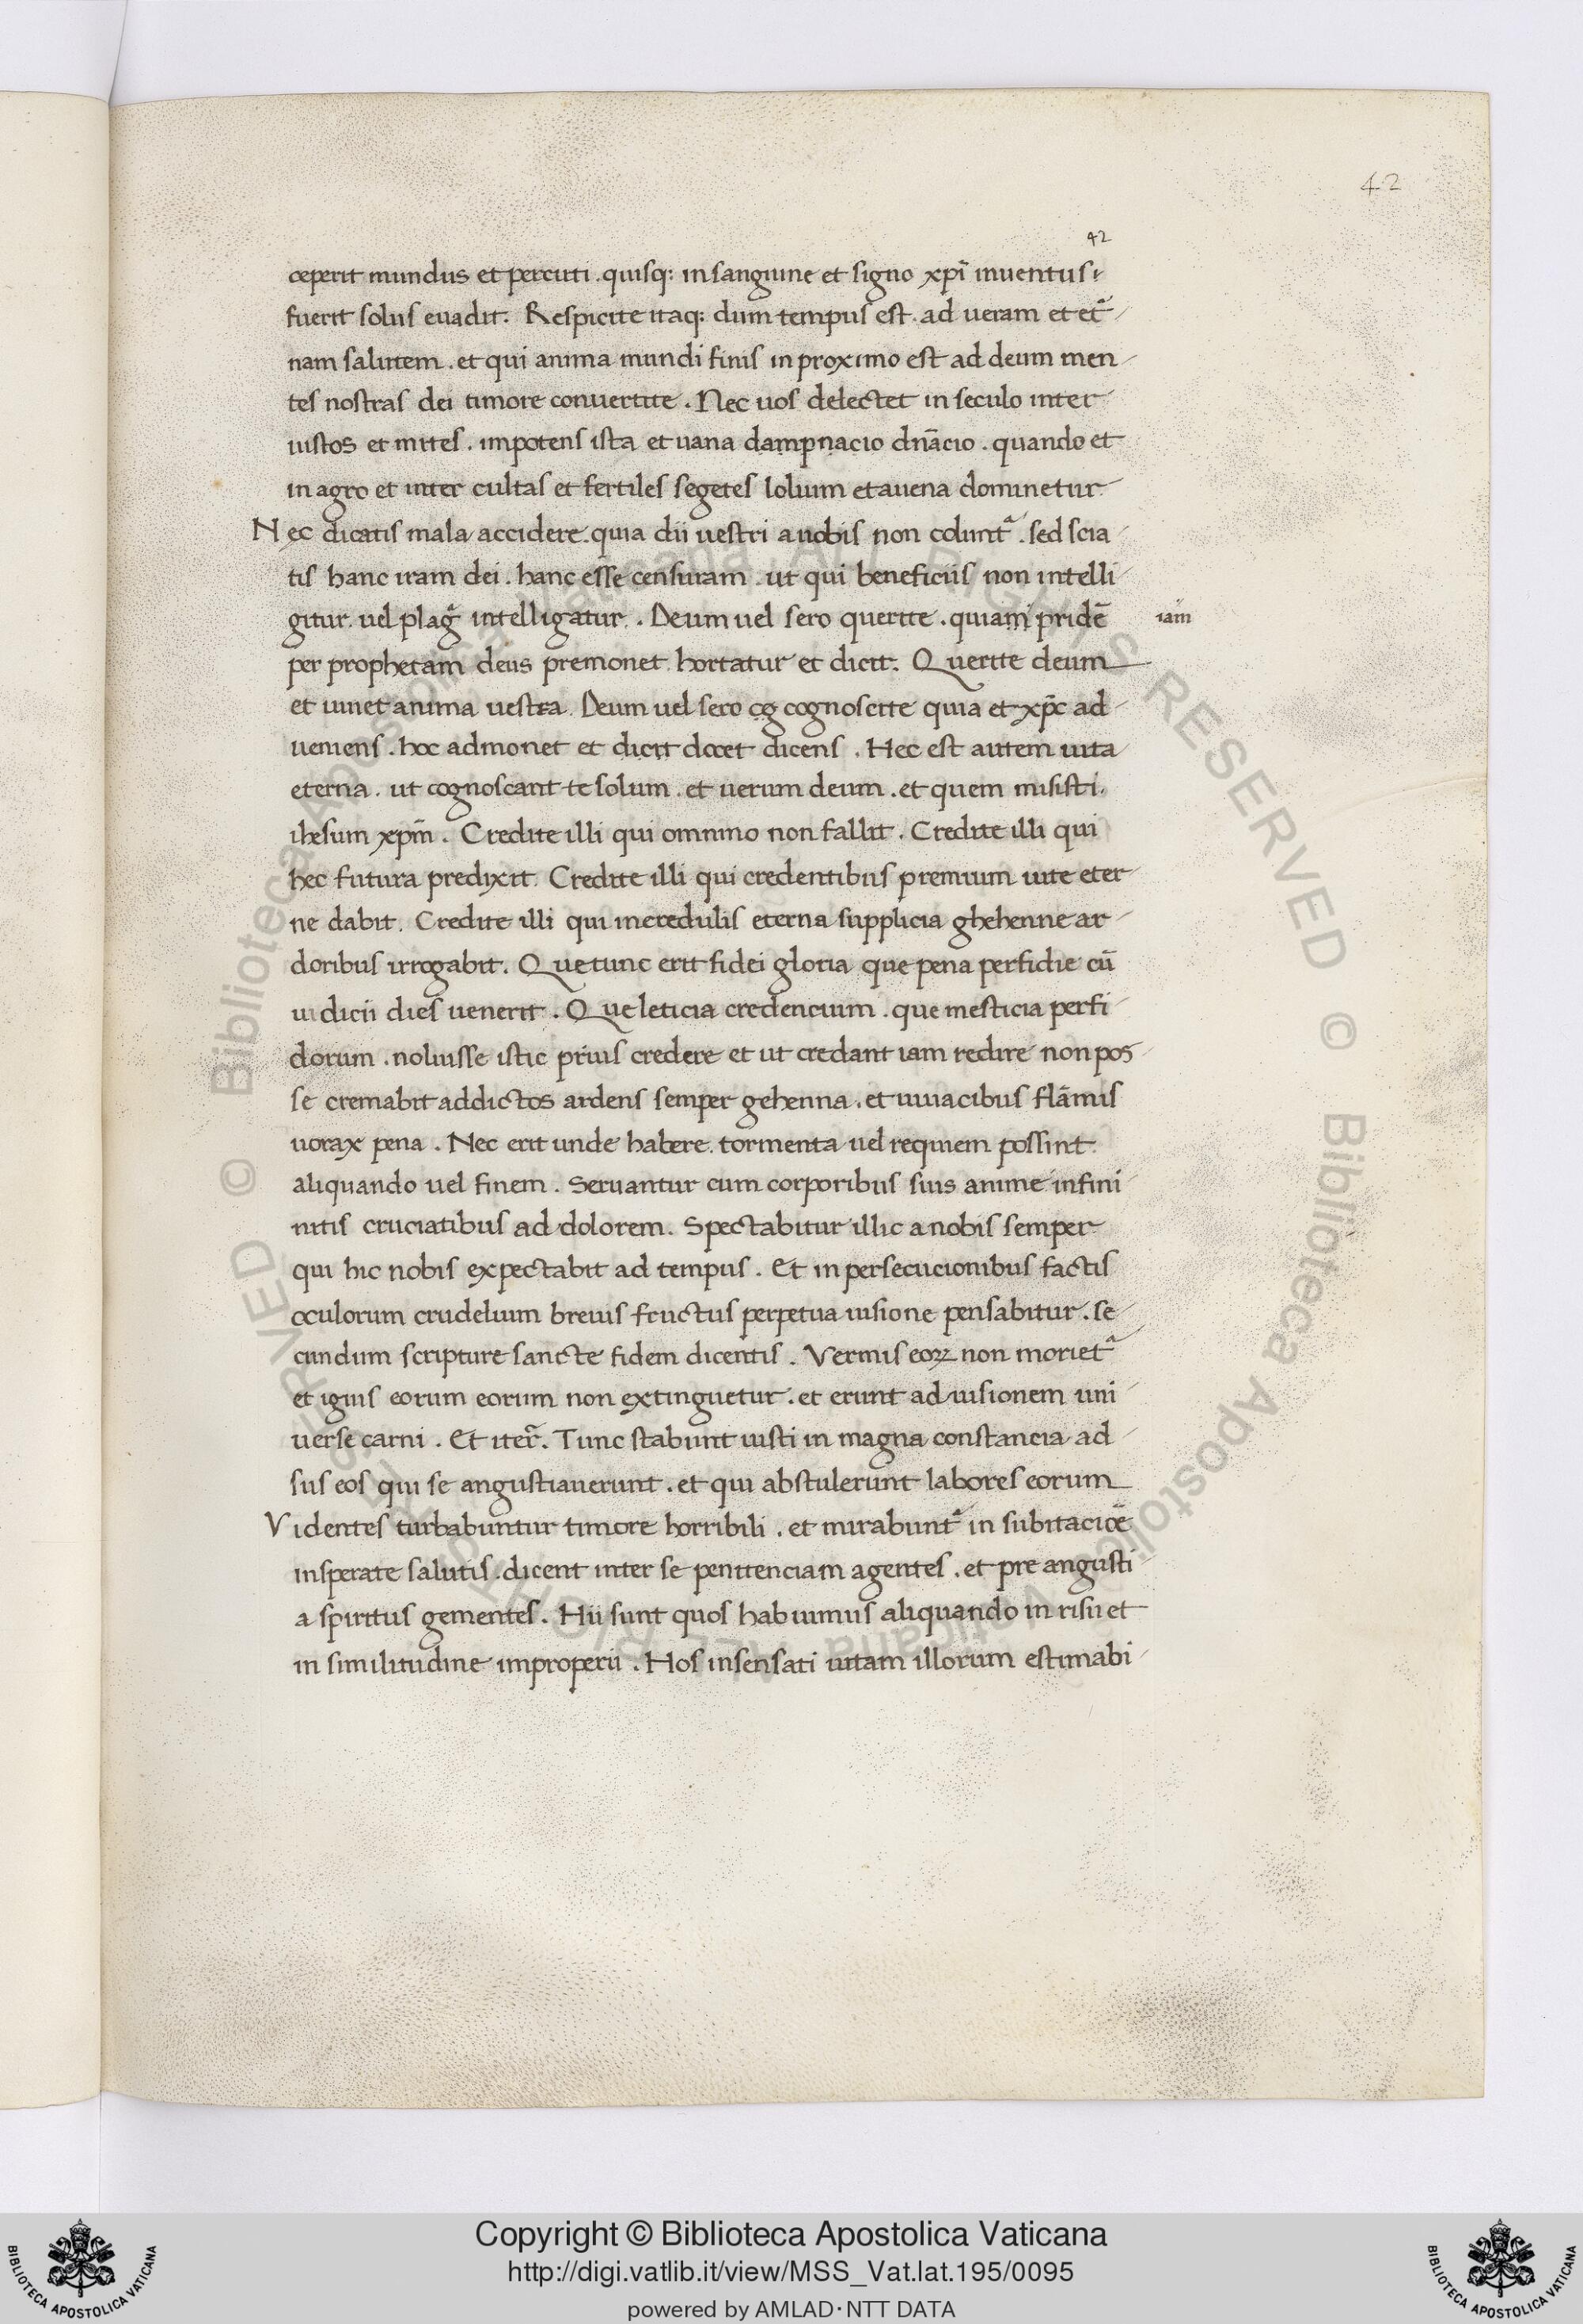 42
42
ceperit mundus et percuti . quisq: in sangiune et signo xpi̅ inuentus
fuerit solus euadit. Respicite itaq: dum tempus est . ad ueram et et̾
nam salutem . et qui anima mundi finis in proximo est ad deum men
tes nostras dei timore conuertite . Nec uos delectet in seculo inter
iustos et mites . impotens ista et uana dampnacio dn̅acio . quando et
in agro et inter cultas et fertiles segetes lolium et auena dominetur
Nec dicatis mala accidere . quia dii uestri a uobis non colunt̾ . sed scia
tis hanc iram dei . hanc esse censuram . ut qui beneficiis non intelli
gitur . uel plag̾ intelligatur . Deum uel sero querite . quiam pride̅ iam
per prophetam deus premonet hortatur et dicit . Querite deum
et uiuet anima uestra . Deum uel sero cg cognoscite quia et xp̅c ad
ueniens . hoc admonet et dicit docet dicens . Hec est autem uita
eterna . ut cognoscant te solum . et uerum deum . et quem misisti
ihesum xpm̅ . Credite illi qui omnino non fallit . Credite illi qui
hec futura predixit . Credite illi qui credentibus premium uite eter
ne dabit . Credite illi qui incredulis eterna supplicia ghehenne ar
doribus irrogabit . Que tunc erit fidei gloria que pena perfidie cu̅
iudicii dies uenerit . Que leticia credencium . que mesticia perfi
dorum . noluisse istic prius credere et ut credant iam redire non pos
se cremabit addictos ardens semper gehenna . et uiuacibus fla̅mis
uorax pena . Nec erit unde habere tormenta uel requiem possint
aliquando uel finem . Seruantur cum corporibus suis anime infini
nitis cruciatibus ad dolorem . Spectabitur illic a nobis semper
qui hic nobis expectabit ad tempus . Et in persecucionibus factis
oculorum crudelium breuis fructus perpetua uisione pensabitur . se
cundum scripture sancte fidem dicentis . Vermis eoꝝ non moriet̾
et ignis eorum eorum non extinguetur . et erunt ad uisionem uni
uerse carni . Et iter̾ . Tunc stabunt iusti in magna constancia ad
sus eos qui se angustiauerunt . et qui abstulerunt labores eorum
Videntes turbabuntur timore horribili . et mirabunt̾ in subitacio̅e
insperate salutis . dicent inter se penitenciam agentes . et pre angusti
a spiritus gementes . Hii sunt quos habuimus aliquando in risu et
in similitudine improperii . Hos insensati uitam illorum estimabi
© Biblioteca Apostolica Vaticana ALL RIGHTS RESERVED
© Biblioteca Apostolica Vaticana ALL RIGHTS RESERVED
BIBLIOTECA APOSTOLICA VATICANA
Copyright © Biblioteca Apostolica Vaticana
http://digi.vatlib.it/view/MSS_Vat.lat.195/0095
powered by AMLAD·NTT DATA
BIBLIOTECA APOSTOLICA VATICANA